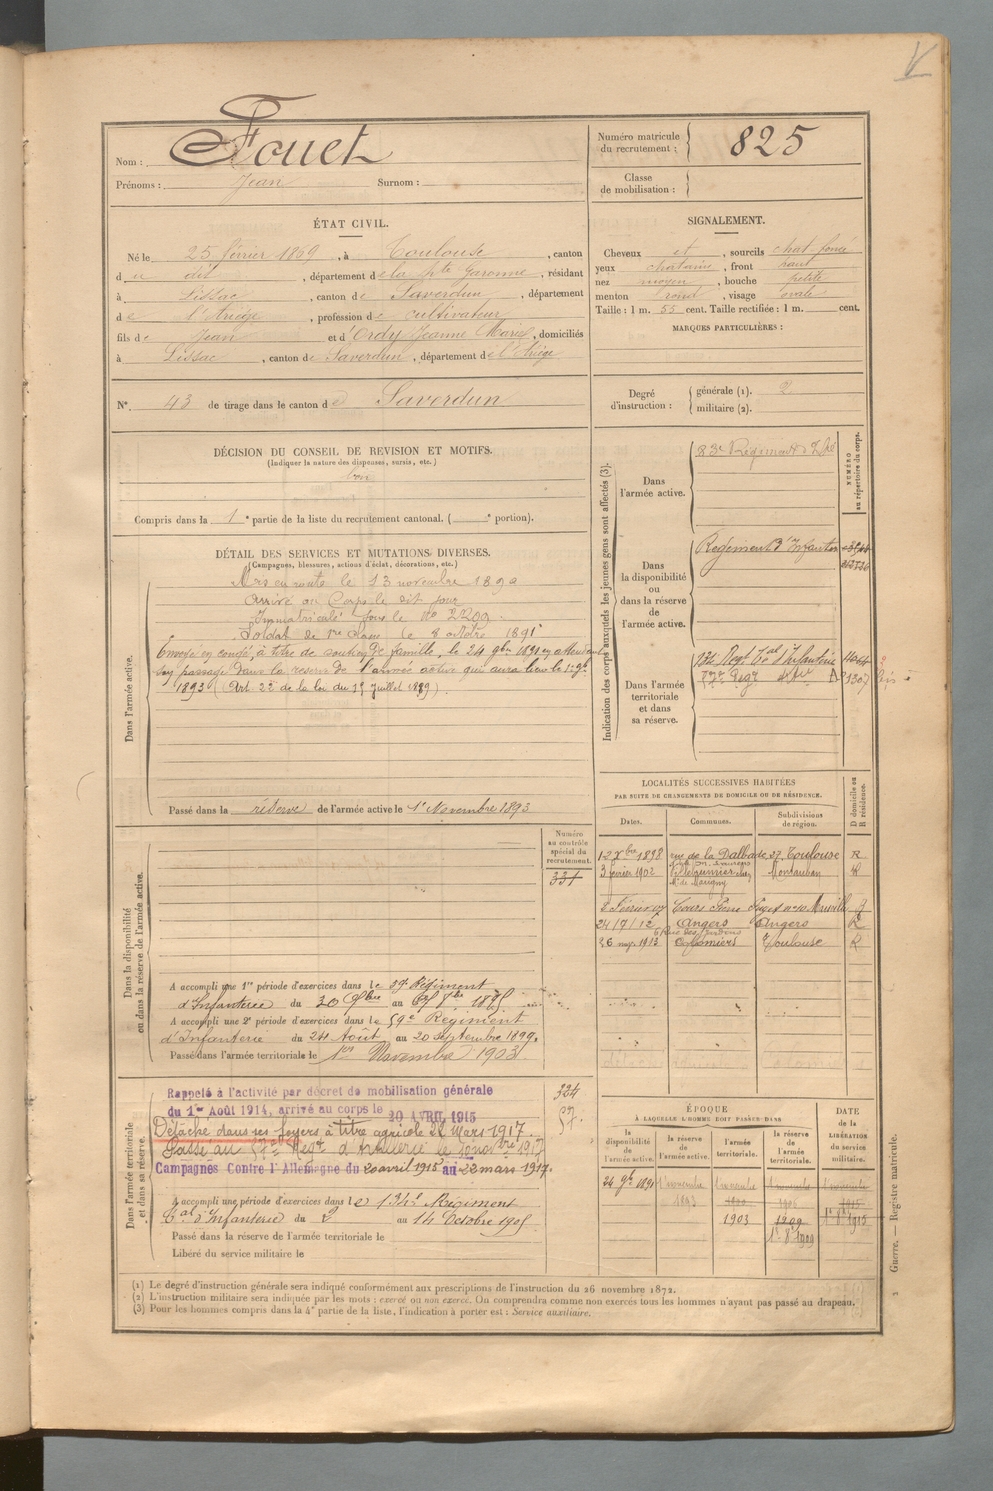 Nom : Fouet
Prénoms : Jean Surnom :
Numéro matricule du recrutement : 825
Classe de mobilisation :
ÉTAT CIVIL.
Né le 25 février 1869, à Toulouse, canton
du dit, département de la Hte Garonne, résidant
à Lissac, canton de Saverdun, département
de l'Ariège, profession de cultivateur
fils de Jean et d'Ordy Jeanne Marie, domiciliés
à Lissac, canton de Saverdun, département de l'Ariège
N° 43 de tirage dans le canton de Saverdun
SIGNALEMENT.
Cheveux et, sourcils chat. foncé
yeux chatains, front haut
nez moyen, bouche petite
menton rond, visage ovale
Taille : 1 m. 55 cent. Taille rectifiée : 1 m. cent.
MARQUES PARTICULIÈRES :
Degré d'instruction : générale (1). 2
militaire (2).
DÉCISION DU CONSEIL DE REVISION ET MOTIFS.
(Indiquer la nature des dispenses, sursis, etc.)
bon
Compris dans la 1e partie de la liste du recrutement cantonal. ( e portion).
DÉTAIL DES SERVICES ET MUTATIONS DIVERSES.
(Campagnes, blessures, actions d'éclat, décorations, etc.)
Dans l'armée active.
Mis en route le 13 novembre 1890
Arrivé au Corps le dit jour
Immatriculé sous le No
Soldat de 1re classe le 8 octobre 1891
Envoyé en congé, à titre de soutien de famille, le 24 9bre 1891 en attendant
son passage dans la réserve de l'armée active qui aura lieu le 1er 9bre
1893 (Art. 22 de la loi du 15 juillet 1889).
Passé dans la réserve de l'armée active le 1er Novembre 1893
Indication des corps auxquels les jeunes gens sont affectés (3).
NUMÉRO au répertoire du corps.
Dans l'armée active.
83e Régiment d'Inf.
Dans la disponibilité ou dans la réserve de l'armée active.
Régiment d'Infanterie
Dans l'armée territoriale et dans sa réserve.
134 Regt Tal d'Infanterie
57e Regt 1307
LOCALITÉS SUCCESSIVES HABITÉES
PAR SUITE DE CHANGEMENTS DE DOMICILE OU DE RÉSIDENCE.
Dates. Communes. Subdivisions de région. D domicile ou R résidence.
12 Xbre 1898 rue de la Dalbade, 27, Toulouse R
3 février 1902 Montauban R
8 Février 07 Cours Marseille
24/7/12 Angers Angers R
26 1913 Colomiers Toulouse R
Dans la disponibilité ou dans la réserve de l'armée active.
Numéro au contrôle spécial du recrutement.
331
A accompli une 1re période d'exercices dans le Régiment
d'Infanterie du au
A accompli une 2e période d'exercices dans le 59e Régiment
d'Infanterie du 24 Août au 20 septembre 1899.
Passé dans l'armée territoriale le 1er Novembre 1903
Dans l'armée territoriale et dans sa réserve.
324
57.
Rappelé à l'activité par décret de mobilisation générale
du 1er Août 1914, arrivé au corps le 20 AVRIL 1915
Détaché dans ses foyers à titre agricole 22 Mars 1917
Passé au 57e Regt d'Artillerie le 1917
Campagnes Contre l'Allemagne du 20 avril 1915 au 22 mars 1917.
A accompli une période d'exercices dans le 134e Régiment
Tal d'Infanterie du 2 au 14 Octobre 1905
Passé dans la réserve de l'armée territoriale le
Libéré du service militaire le
ÉPOQUE
À LAQUELLE L'HOMME DOIT PASSER DANS
la disponibilité de l'armée active. la réserve de l'armée active. l'armée territoriale. la réserve de l'armée territoriale.
DATE de la LIBÉRATION du service militaire.
24 9bre 1891 1 novembre 1893 1 novembre 1900 1 novembre 1906 1 novembre 1915
1903 1909 1er 8bre 1915
1er 8bre 1909
(1) Le degré d'instruction générale sera indiqué conformément aux prescriptions de l'instruction du 26 novembre 1872.
(2) L'instruction militaire sera indiquée par les mots : exercé ou non exercé. On comprendra comme non exercés tous les hommes n'ayant pas passé au drapeau.
(3) Pour les hommes compris dans la 4e partie de la liste, l'indication à porter est : Service auxiliaire.
Guerre. — Registre matricule.